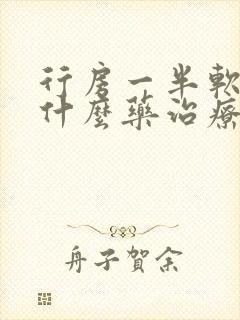 行房一半軟
什麼藥治療
舟子賀余